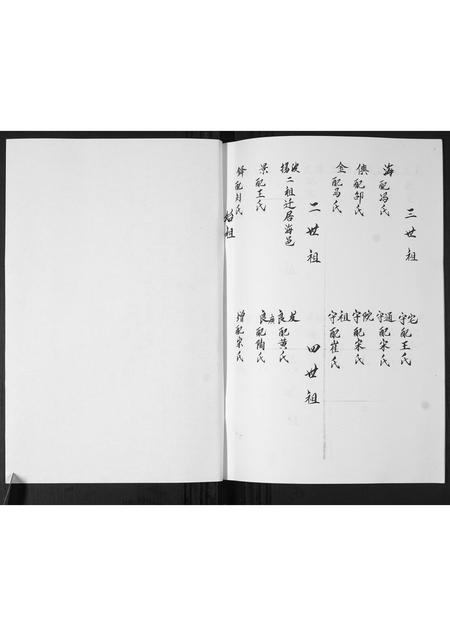 三世祖
海配冯氏
配邹氏
金配马氏
二世祖
扬波二祖迁居海邑
景配王氏
配刘氏
始祖
守宅配王氏
守通配宋氏
守院配宋氏
守祖配崔氏
四世祖
良发配黄氏
良配陶氏
增配宋氏